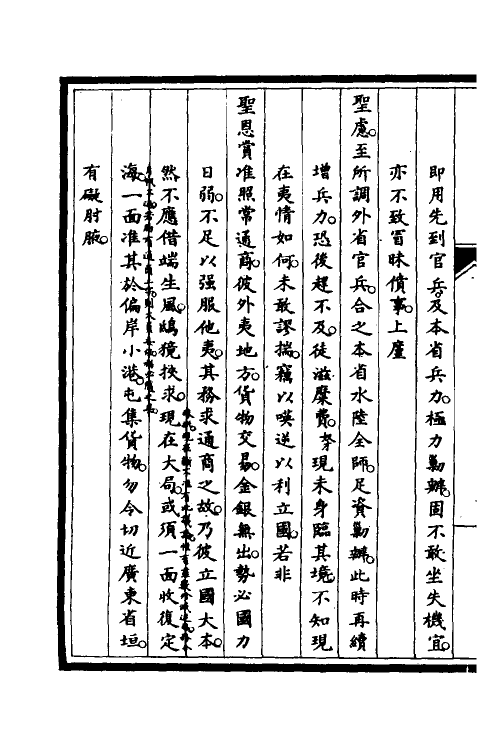 即用先到官兵及本省兵力極力勦辦固不敢坐失機宜
亦不致冒昧僨事上廑
聖慮至所調外省官兵合之本省水陸全師足資勦辦此時再續
增兵力恐後趕不及徒滋糜費努現未身臨其境不知現
在夷情如何未敢謬揣竊以𠸄逆以利立國若非
聖恩賞准照常通商彼外夷地方貨物交易金銀無出勢必國力
日弱不足以强服他夷其務求通商之故乃彼立國大本
然不應借端生風鴟獍挾求現在大局或須一面收復定
海一面准其於偏岸小港屯集貨物勿令切近廣東省垣
有礙肘腋